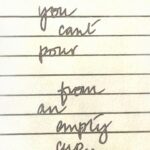 you
cant
pour
from
an
empty
cup